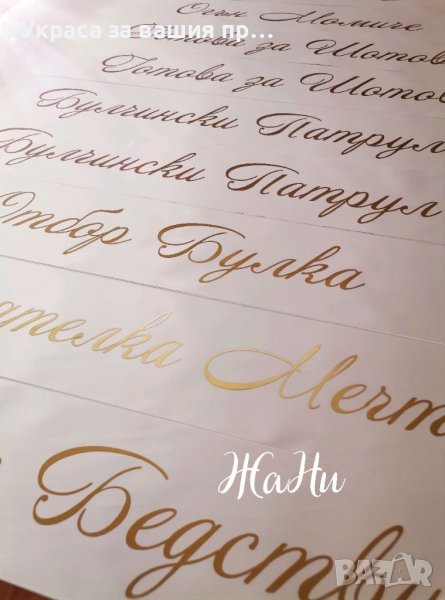 Украса за вашия пр...
Огън Момиче
Готови за Шотов
Готова за Шотов
Булчински Патрул
Булчински Патрул
Отбор Булка
ателка Мечт
Бедстви
ЖаНи
BAZAR